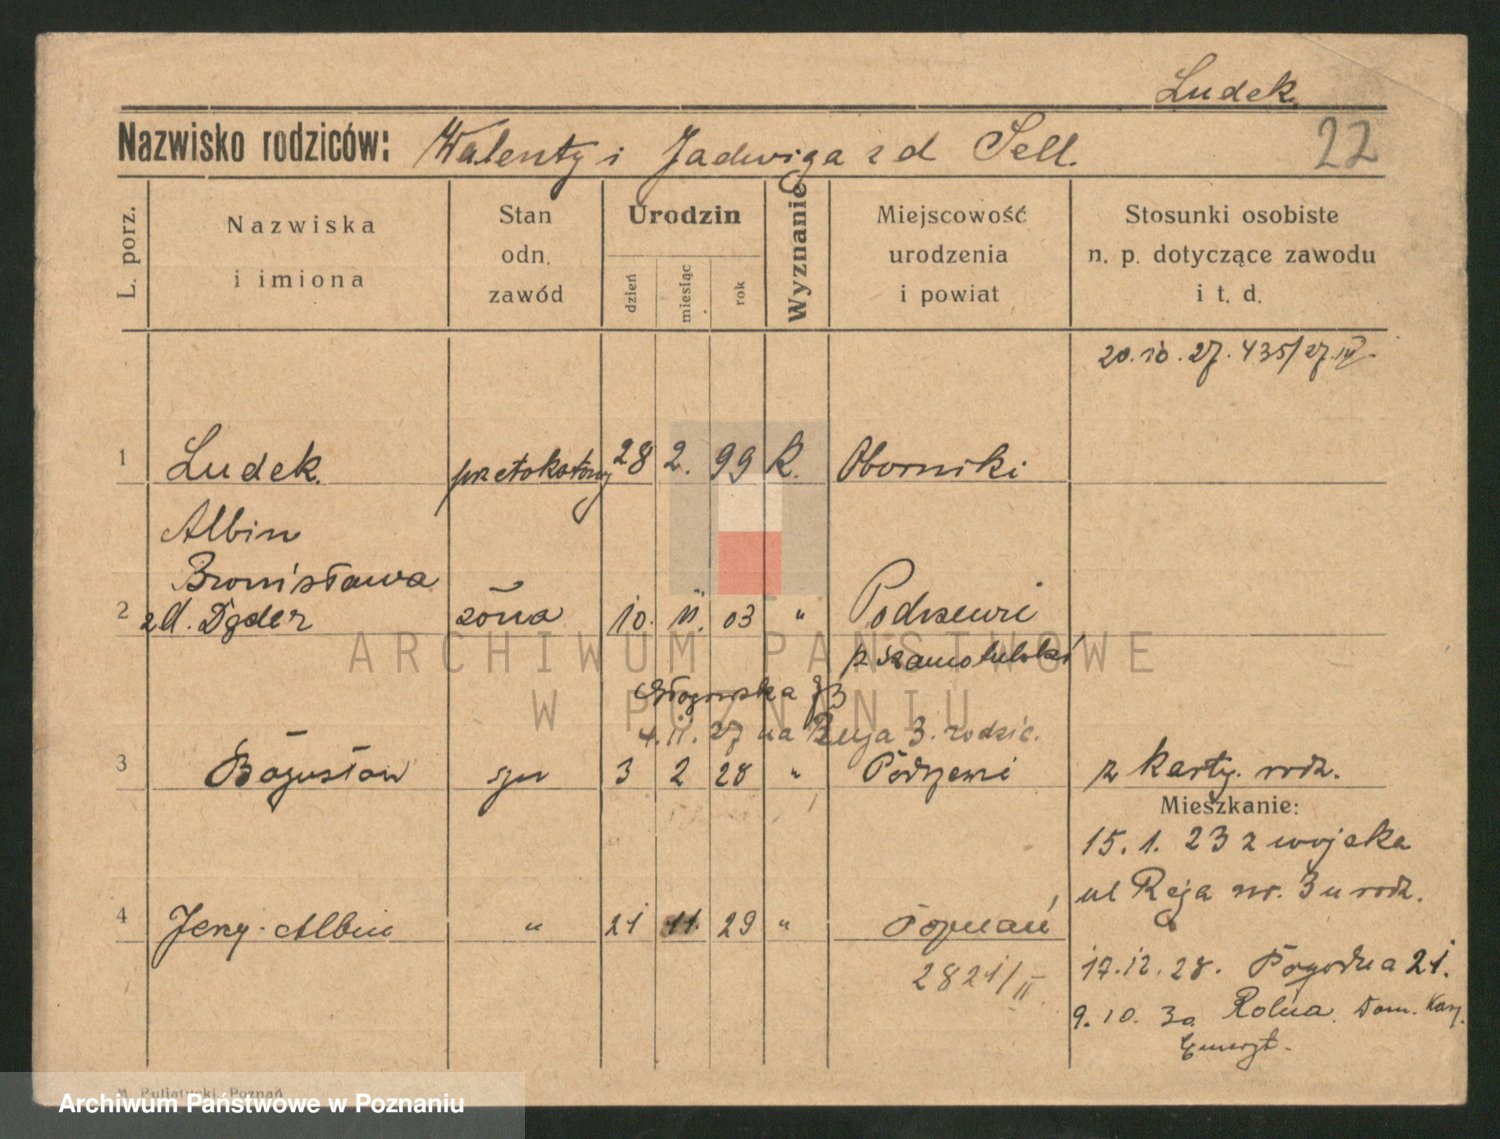 Ludek.
Nazwisko rodziców: Walenty i Jadwiga z d Sell.
22
L. porz.
Nazwiska
i imiona
Stan
odn.
zawód
Urodzin
dzień
miesiąc
rok
Wyznanie
Miejscowość
urodzenia
i powiat
Stosunki osobiste
n. p. dotyczące zawodu
i t. d.
20.10.27. 435/27.IV.
1 Ludek. przetokowy 28 2. 99 k. Oborniki
Albin
Bronisława
2 z d. Dyder żona 10. 11. 03 " Podrzewie
p szamotulski
ARCHIWUM PAŃSTWOWE
W POZNANIU
Głogowska 83
4.11.27 na Reja 3. rodzic.
3 Bogusław syn 3 2 28 " Podrzewie z karty. rodz.
Mieszkanie:
15.1.23 z wojska
ul Reja nr. 3 u rodz.
4 Jerzy-Albin " 21 11. 29 " Poznań
2821/II
17.12.28. Pogodna 21.
9.10.30 Rolna. Dom. Kasy
Emeryt.
M. Putiatycki, Poznań
Archiwum Państwowe w Poznaniu